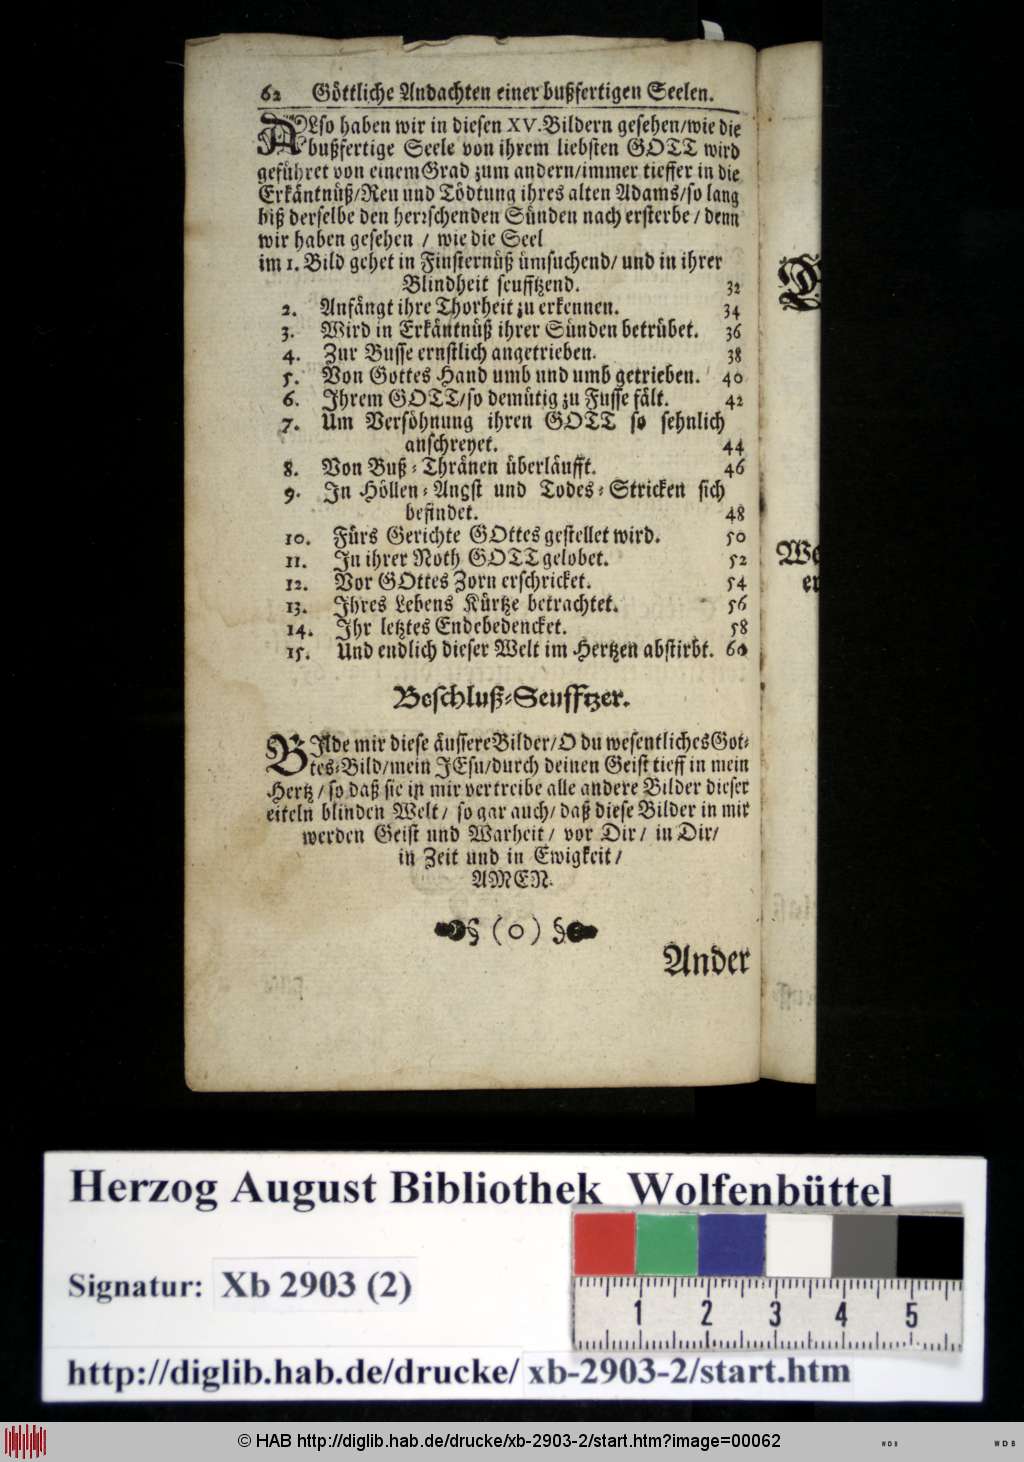 62 Göttliche Andachten einer bußfertigen Seelen.
ALso haben wir in diesen XV. Bildern gesehen/wie die
bußfertige Seele von ihrem liebsten GOTT wird
geführet von einem Grad zum andern/immer tieffer in die
Erkäntnüß/Reu und Tödtung ihres alten Adams/so lang
biß derselbe den herrschenden Sünden nach ersterbe/denn
wir haben gesehen / wie die Seel
im 1. Bild gehet in Finsternüß ümsuchend/ und in ihrer
Blindheit seufftzend. 32
2. Anfängt ihre Thorheit zu erkennen. 34
3. Wird in Erkäntnüß ihrer Sünden betrübet. 36
4. Zur Busse ernstlich angetrieben. 38
5. Von Gottes Hand umb und umb getrieben. 40
6. Ihrem GOTT/so demütig zu Fusse fält. 42
7. Um Versöhnung ihren GOTT so sehnlich
anschreyet. 44
8. Von Buß-Thränen überläufft. 46
9. In Höllen-Angst und Todes-Stricken sich
befindet. 48
10. Fürs Gerichte GOttes gestellet wird. 50
11. In ihrer Noth GOTT gelobet. 52
12. Vor GOttes Zorn erschricket. 54
13. Ihres Lebens Kürtze betrachtet. 56
14. Ihr letztes Ende bedencket. 58
15. Und endlich dieser Welt im Hertzen abstirbt. 60
Beschluß-Seufftzer.
BIlde mir diese äussere Bilder/O du wesentliches Got-
tes-Bild/mein JEsu/durch deinen Geist tieff in mein
Hertz/so daß sie in mir vertreibe alle andere Bilder dieser
eiteln blinden Welt/ so gar auch/daß diese Bilder in mir
werden Geist und Warheit/ vor Dir/ in Dir/
in Zeit und in Ewigkeit/
AMEN.
§ (o) §
Ander
We
er
Herzog August Bibliothek Wolfenbüttel
Signatur: Xb 2903 (2)
1 2 3 4 5
http://diglib.hab.de/drucke/ xb-2903-2/start.htm
© HAB http://diglib.hab.de/drucke/xb-2903-2/start.htm?image=00062
WDB
WDB